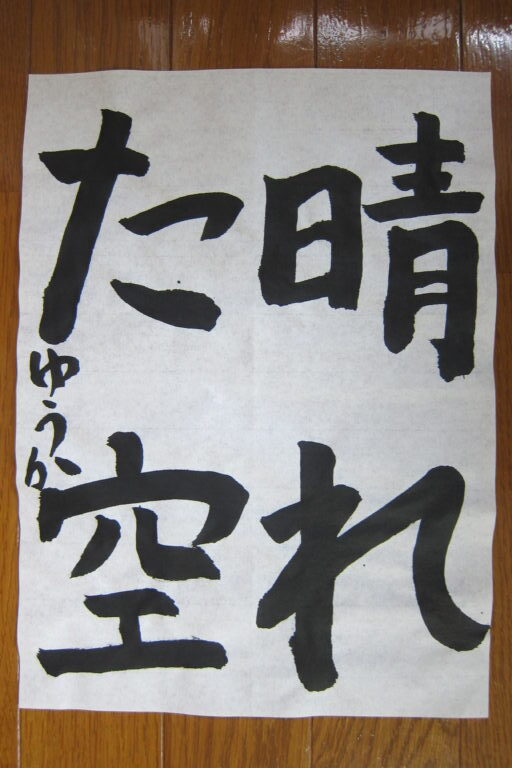 晴れ
た空
ゆうか